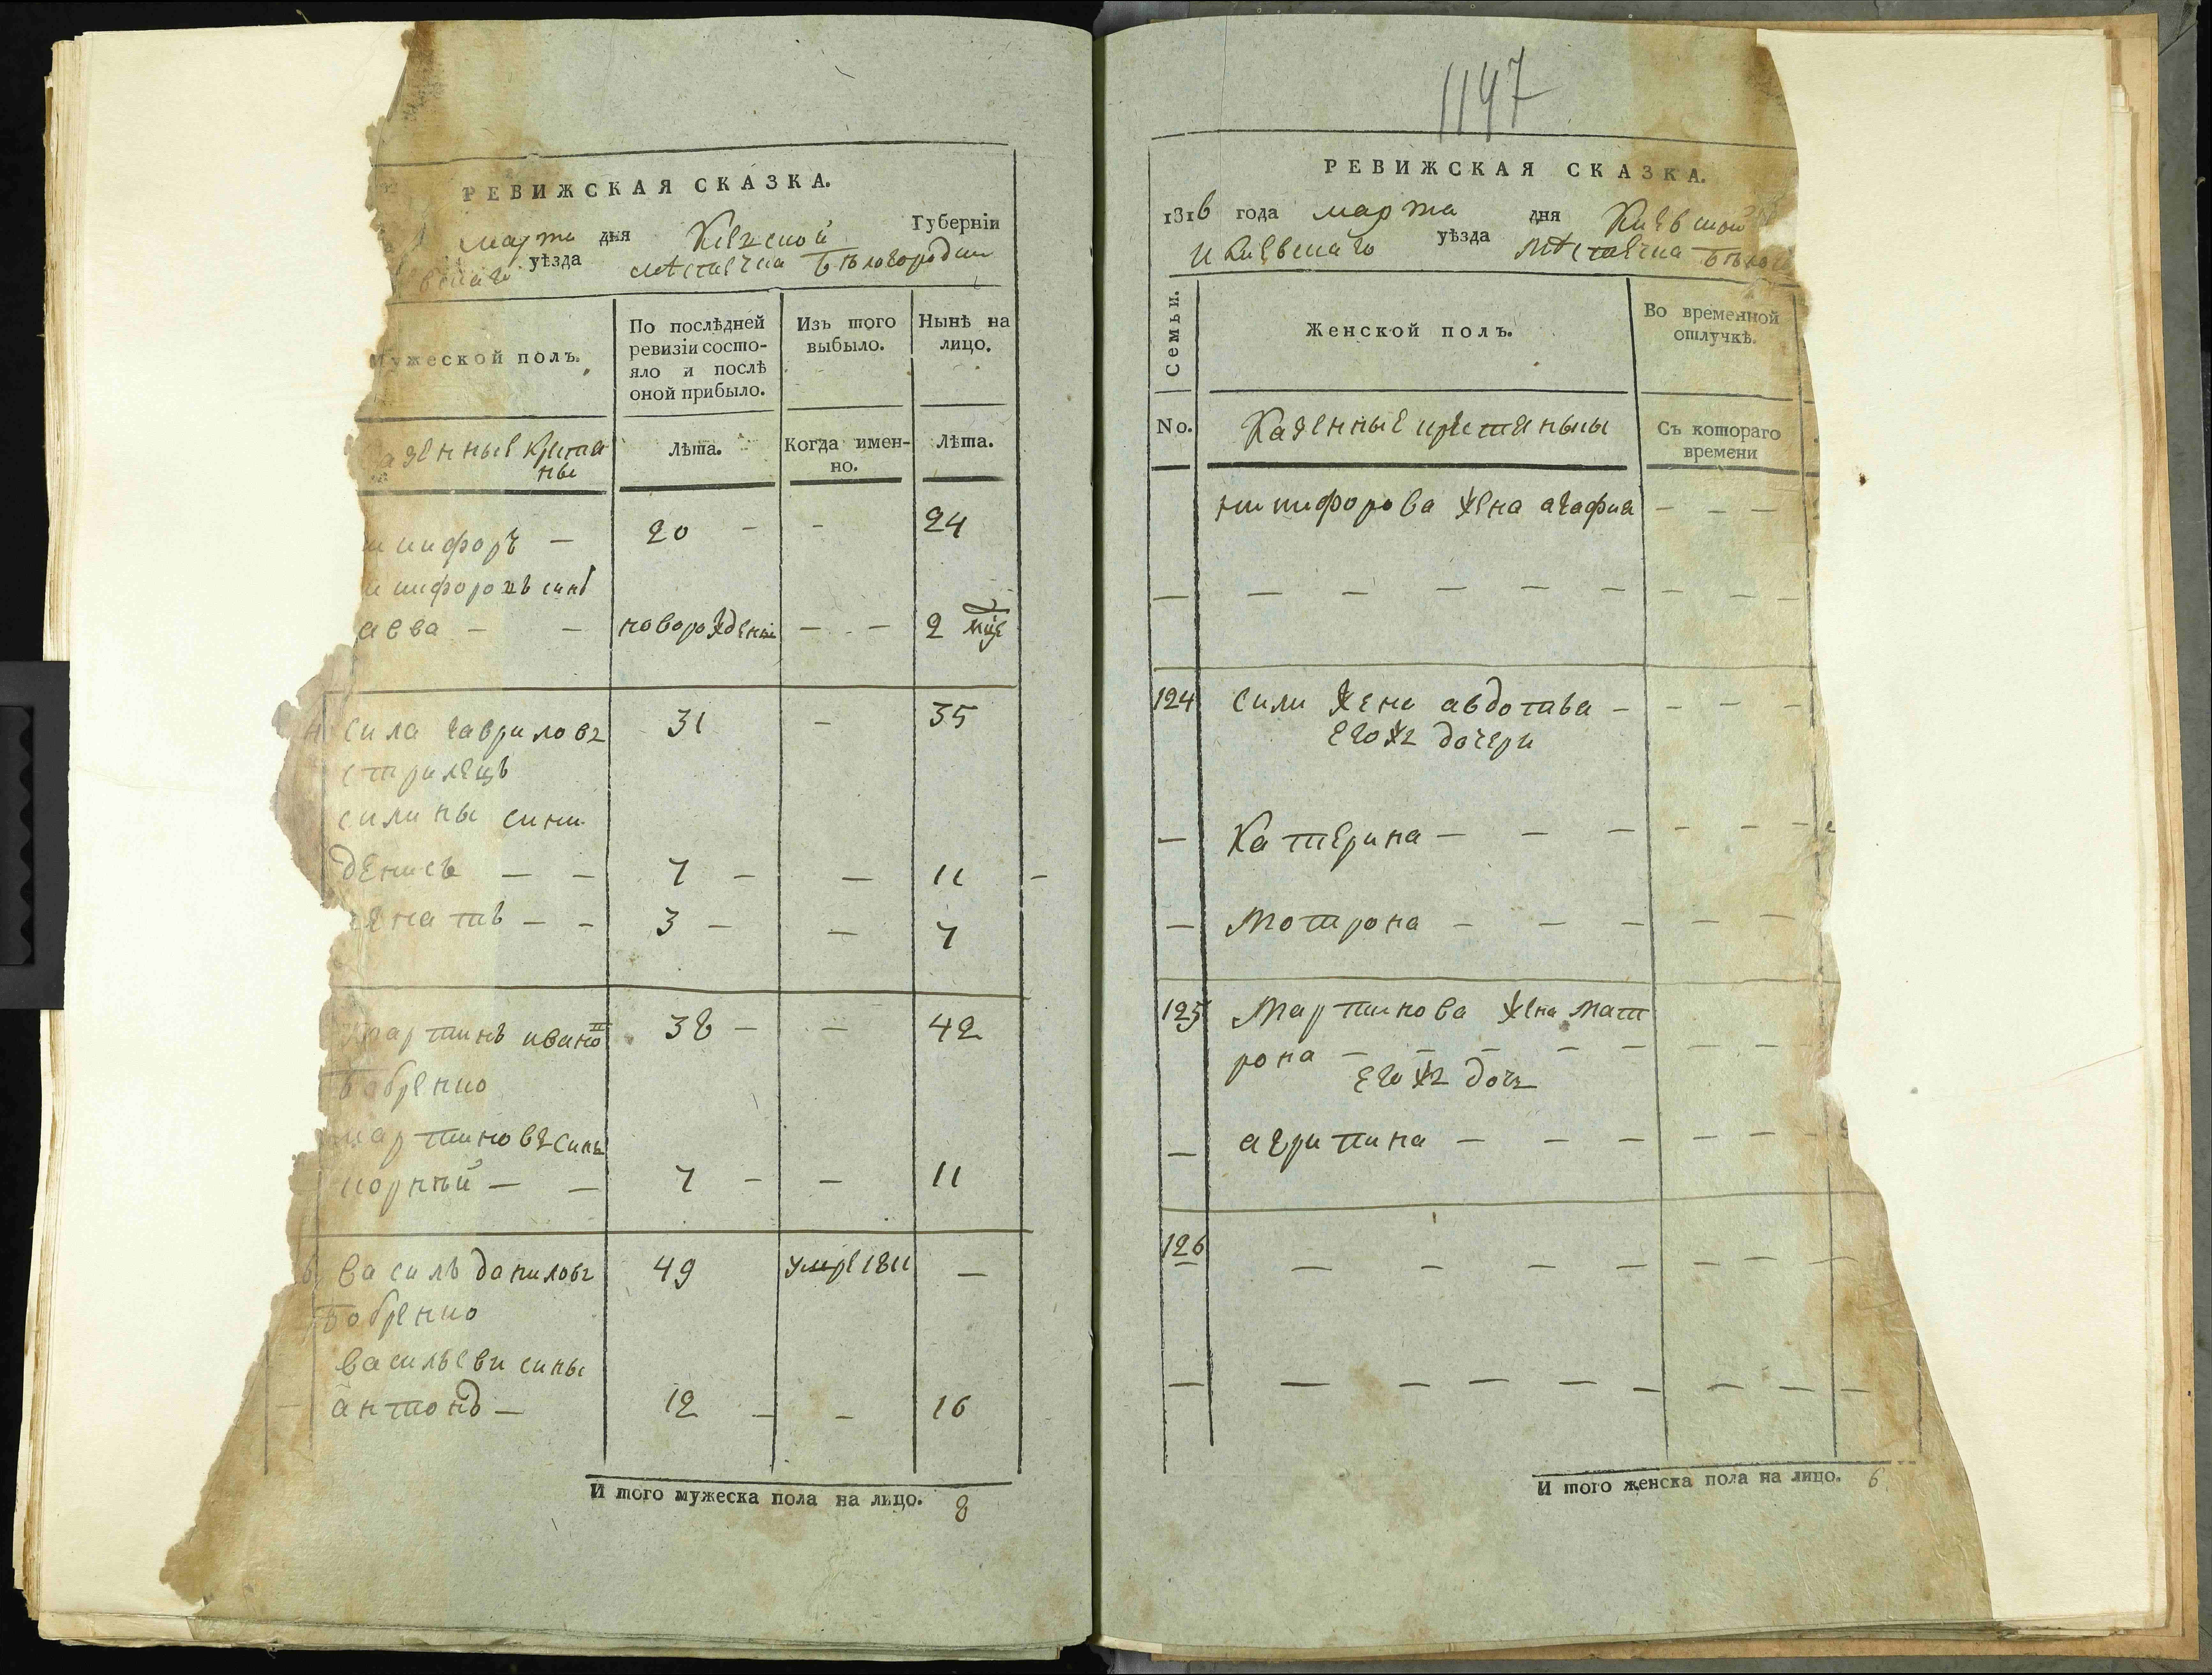 РЕВИЖСКАЯ СКАЗКА.
марта дня Киевской Губернїи
уѣзда мѣстечка Бѣлогородки
Мужеской полъ.
По послѣдней
ревизїи состо-
яло и послѣ
оной прибыло.
Изъ того
выбыло.
Нынѣ на
лицо.
казенные крестя
ны
Лѣта.
Когда имен-
но.
Лѣта.
никифоръ — 20 — — 24
никифоровъ синъ
савва — — новорожденъ — — 2 мце
сила гавриловъ 31 — 35
стрилецъ
силины сини
денисъ — — 7 — — 11 —
игнатъ — — 3 — — 7
мартинъ ивановъ 38 — — 42
бобренко
мартиновъ синъ
корнѣй — — 7 — — 11
василь даниловъ 49 умре 1811 —
бобренко
васильеви сины
антонъ — 12 — — 16
И того мужеска пола на лицо. 8
1147
РЕВИЖСКАЯ СКАЗКА.
1816 года марта дня Киевской
и Киевскаго уѣзда мѣстечка Бѣлого
Семьи.
Женской полъ.
Во временной
отлучкѣ.
No.
Казенные крестяньки
Съ котораго
времени
никифорова жена агафиа — — —
— — — — — — — — —
124 сили жена авдотиа — — — —
егожъ дочери
— Катерина — — — — — —
— мотрона — — — — —
125 мартинова жена мат
рона — — — — — — — —
егожъ дочъ
— агрипина — — — — — —
126 — — — — — — —
— — — — — — — — —
И того женска пола на лицо. 6